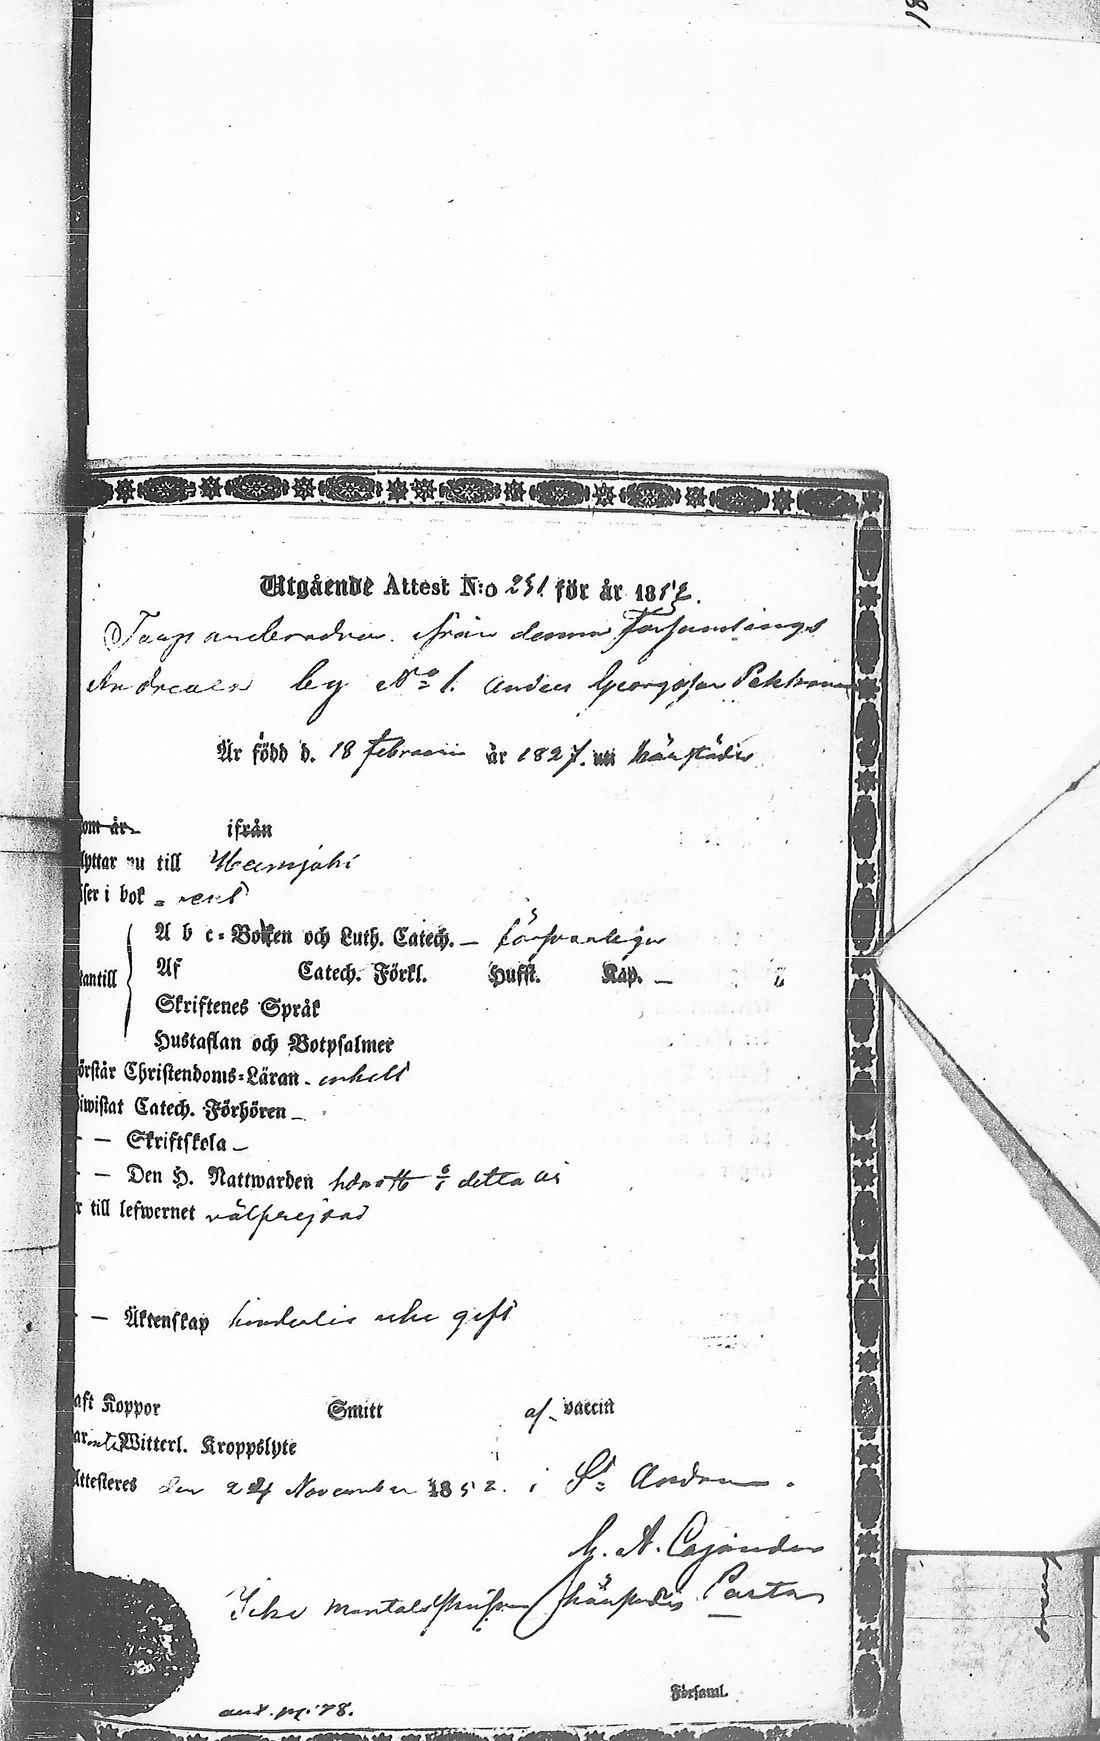 18
Utgående Attest N:o 251 för år 1852.
från denna Församlings
by No 1. Anders Georgsson
Är född d. 18 Februarii år 1827. härstädes
om är ifrån
lyttar nu till
ser i bok - rent
A b c-Boken och Luth. Catech. – försvarligen
tantill
Af Catech. Förkl. Hussl. Kap. –
Skriftenes Språk
Hustaflan och Botpsalmer
örstår Christendoms-Läran - enkelt
iwistat Catech. Förhören –
– – Skriftskola –
– – Den H. Nattwarden detta år
r till lefwernet välfrejdad
– – Äktenskap hinderlös icke gift
aft Koppor Smitt af vaccin
ar Witterl. Kroppslyte
Attesteres den 24 November 1852. i St. Andreæ.
A. Cajander
Icke Mantalsskrifven härstädes Pastor
Församl.
ant. pg. 78.